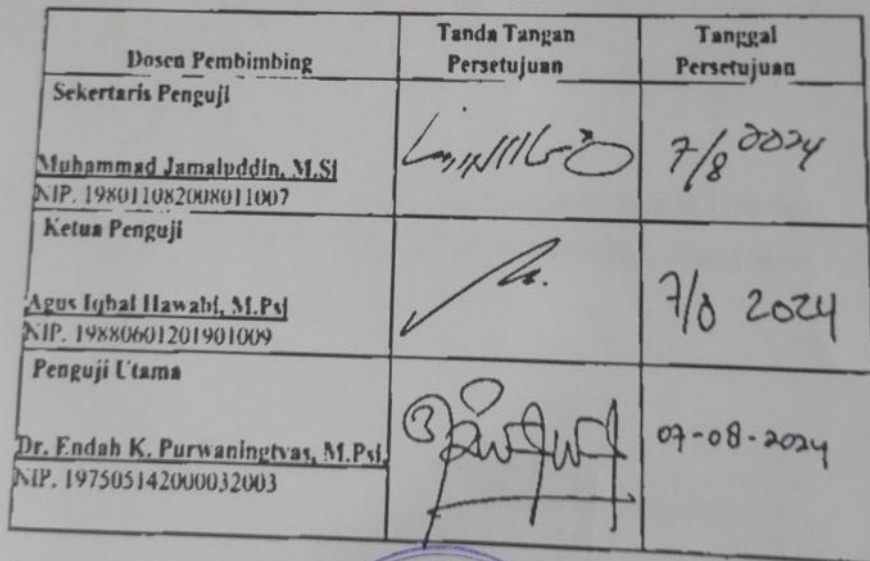 Dosen Pembimbing
Tanda Tangan
Persetujuan
Tanggal
Persetujuan
Sekertaris Penguji
Muhammad Jamaluddin, M.Si
NIP. 198011082008011007
7/8 2024
Ketua Penguji
Agus Iqbal Hawabi, M.Psi
NIP. 19880601201901009
7/8 2024
Penguji Utama
Dr. Endah K. Purwaningtyas, M.Psi,
NIP. 197505142000032003
3
07-08-2024